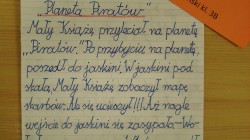 „Planeta Piratów."
Mały Książę przyleciał na planetę
„Piratów." Po przybyciu na planetę,
poszedł do jaskini. W jaskini pod
skałą, Mały Książę zobaczył mapę
skarbów. Ale się ucieszył!!! Aż nagle
wejście do jaskini się zasypało-
ski kl. 3B